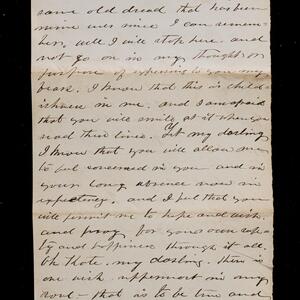 same old dread that has been
mine ever since I can remem-
ber, well I will stop here and
not go on in my thought or
purpose of expressing to you my
fears. I know that this is child-
ishness in me, and I am afraid
that you will smile at it when you
read these lines. Yet my darling
I know that you will allow me
to feel concerned in you and in
your long absence now in
expectancy, and I feel that you
will permit me to hope and wish
and pray for your own safe-
ty and happiness through it all.
Oh Kate, my darling, there is
one wish uppermost in my
soul - that is to be true and